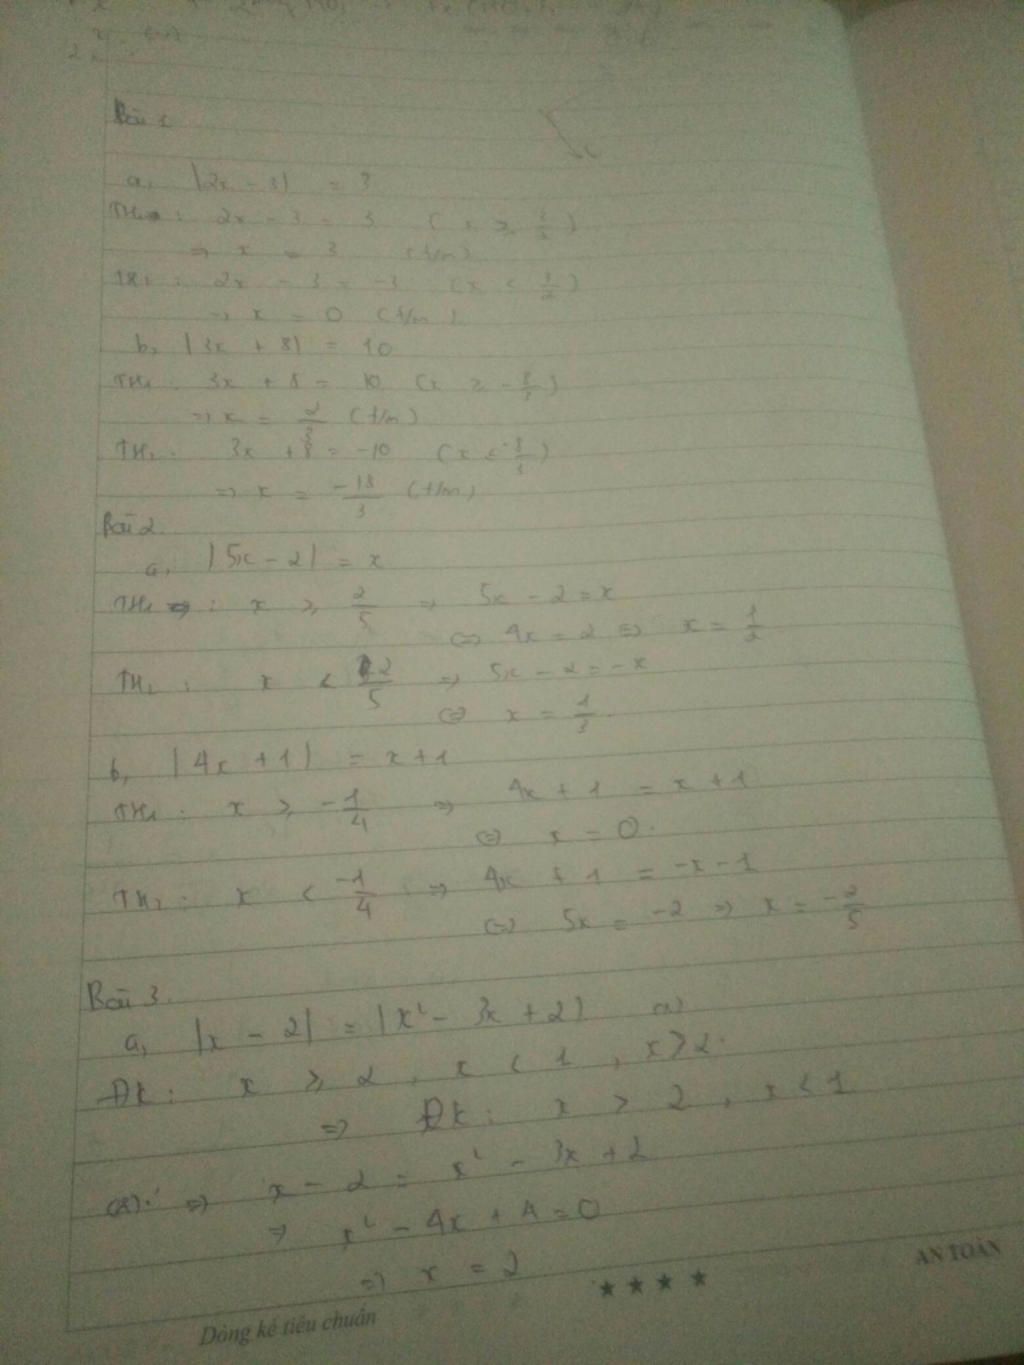 Bài 1
a, |2x - 3| = 3
TH1: 2x - 3 = 3 (x ≥ 3/2)
⇒ x = 3 (t/m)
TH2: 2x - 3 = -3 (x < 3/2)
⇒ x = 0 (t/m)
b, |3x + 8| = 10
TH1: 3x + 8 = 10 (x ≥ -8/3)
⇒ x = 2/3 (t/m)
TH2: 3x + 8 = -10 (x < -8/3)
⇒ x = -18/3 (t/m)
Bài 2.
a, |5x - 2| = x
TH1: x ≥ 2/5 ⇒ 5x - 2 = x
⇔ 4x = 2 ⇔ x = 1/2
TH2: x < 2/5 ⇒ 5x - 2 = -x
⇔ x = 1/3.
b, |4x + 1| = x + 1
TH1: x ≥ -1/4 ⇒ 4x + 1 = x + 1
⇔ x = 0.
TH2: x < -1/4 ⇒ 4x + 1 = -x - 1
⇔ 5x = -2 ⇒ x = -2/5
Bài 3.
a, |x - 2| = |x² - 3x + 2|
ĐK: x ≥ 2, x < 1, x > 2.
⇒ ĐK: x > 2, x < 1
⇒ x - 2 = x² - 3x + 2
⇒ x² - 4x + 4 = 0
⇒ x = 2
Dòng kẻ tiêu chuẩn ★★★★ AN TOÀN